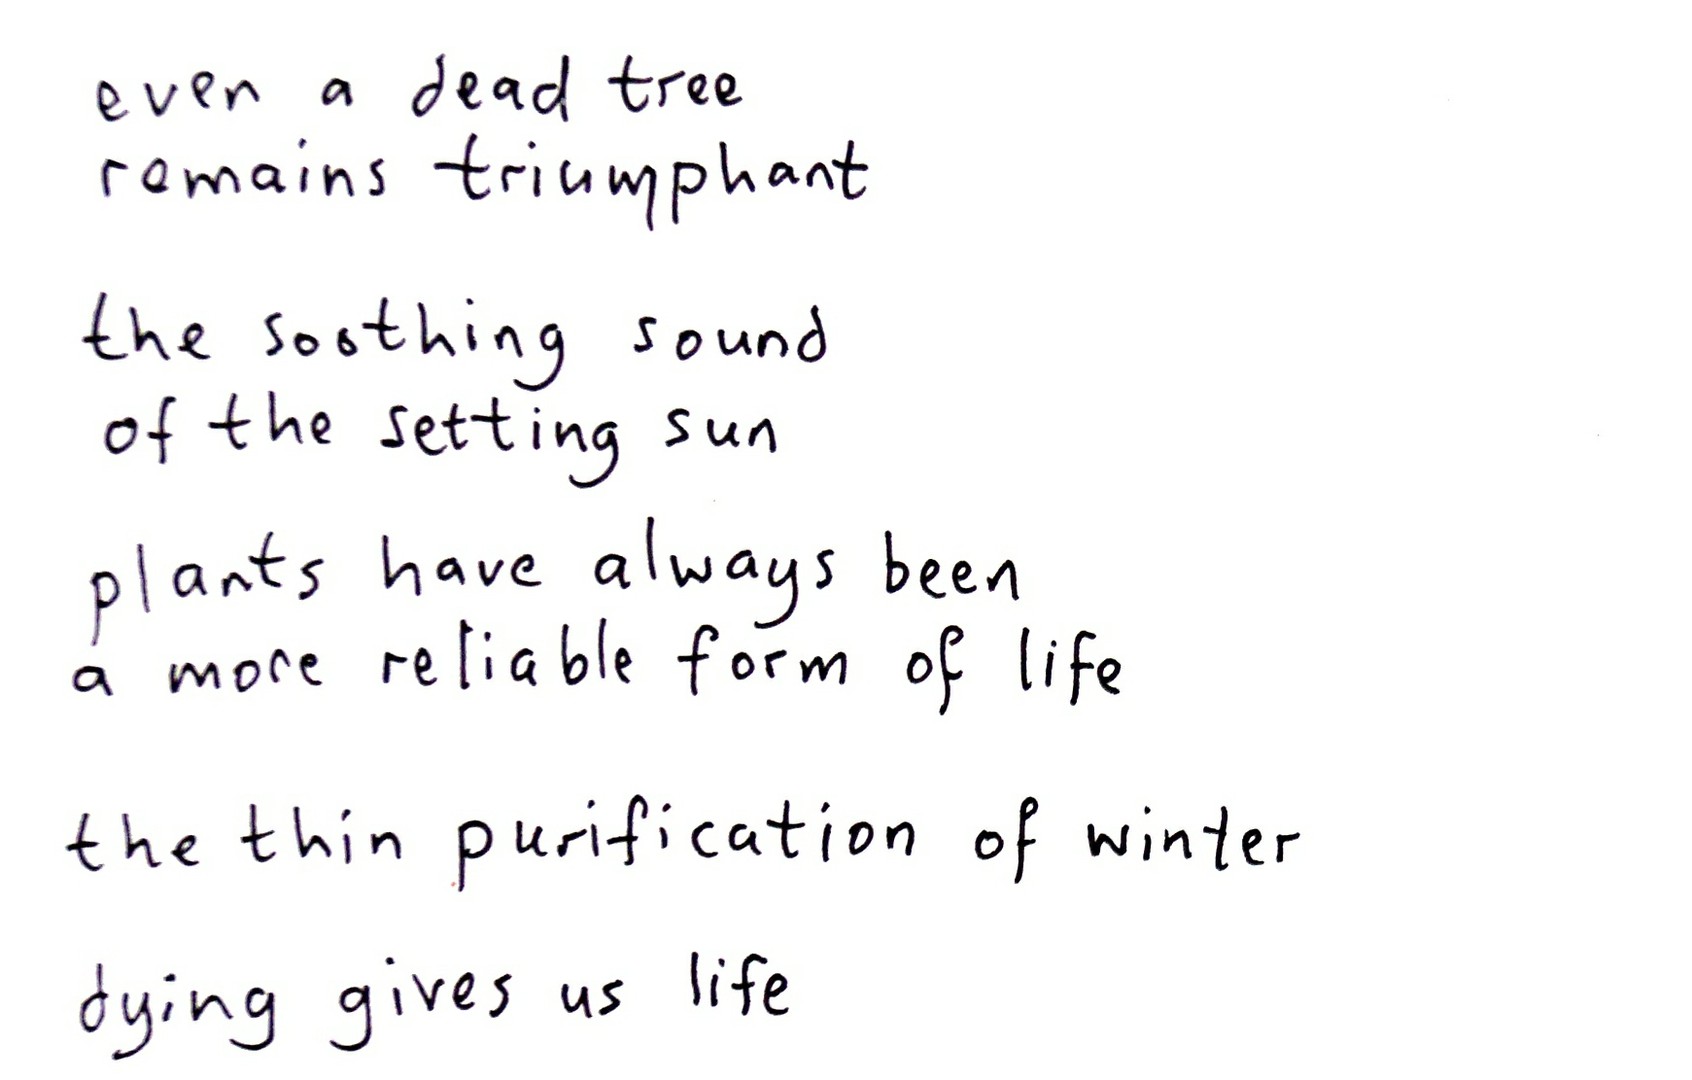 even a dead tree
remains triumphant
the soothing sound
of the setting sun
plants have always been
a more reliable form of life
the thin purification of winter
dying gives us life